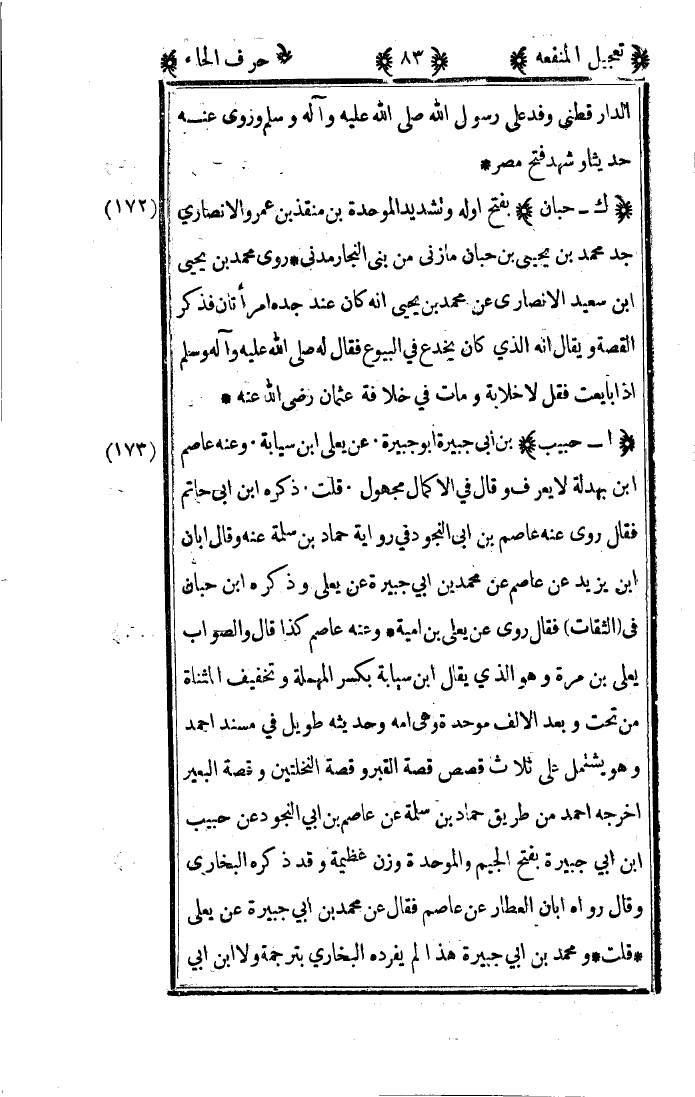 تعجيل المنفعه ﴿٨٣﴾ حرف الحاء
الدار قطني وفد على رسول الله صلى الله عليه وآله وسلم وزوى عنه
حديثا و شهد فتح مصر*
(١٧٢) ﴿ك - حبان﴾ بفتح اوله وتشديد الموحدة بن منقذ بن عمرو الانصاري
جد محمد بن يحيى بن حبان مازني من بنى النجار مدنى * روى محمد بن يحيى
ابن سعيد الانصارى عن محمد بن يحيى انه كان عند جده امرأتان فذكر
القصة و يقال انه الذي كان يخدع في البيوع فقال له صلى الله عليه وآله وسلم
اذا بايعت فقل لا خلابة و مات في خلافة عثمان رضى الله عنه *
(١٧٣) ﴿ا - حبيب﴾ بن أبي جبيرة أبو جبيرة · عن يعلى ابن سيابة · وعنه عاصم
ابن بهدلة لا يعرف و قال في الاكمال مجهول · قلت · ذكره ابن ابى حاتم
فقال روى عنه عاصم بن ابى النجود في رواية حماد بن سلمة عنه وقال ابان
ابن يزيد عن عاصم عن محمد بن ابي جبيرة عن يعلى و ذكره ابن حبان
فى (الثقات) فقال روى عن يعلى بن امية * وعنه عاصم كذا قال والصواب
يعلى بن مرة و هو الذي يقال ابن سيابة بكسر المهملة و تخفيف المثناة
من تحت و بعد الالف موحدة وهى امه وحديثه طويل في مسند احمد
و هو يشتمل على ثلاث قصص قصة القبر و قصة النخلتين و قصة البعير
اخرجه احمد من طريق حماد بن سلمة عن عاصم بن ابي النجود عن حبيب
ابن ابي جبيرة بفتح الجيم والموحدة وزن عظيمة و قد ذكره البخارى
وقال رواه ابان العطار عن عاصم فقال عن محمد بن ابي جبيرة عن يعلى
*قلت* و محمد بن ابي جبيرة هذا لم يفرده البخاري بترجمة ولا ابن ابي